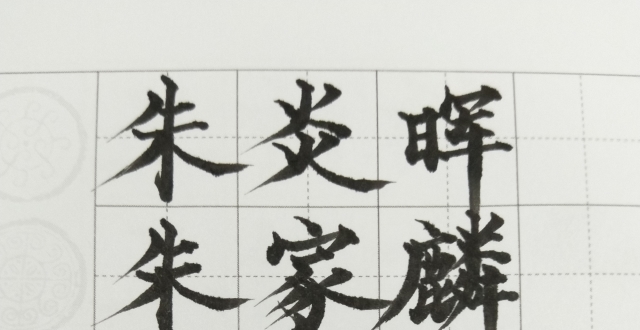 朱炎晖
朱家麟